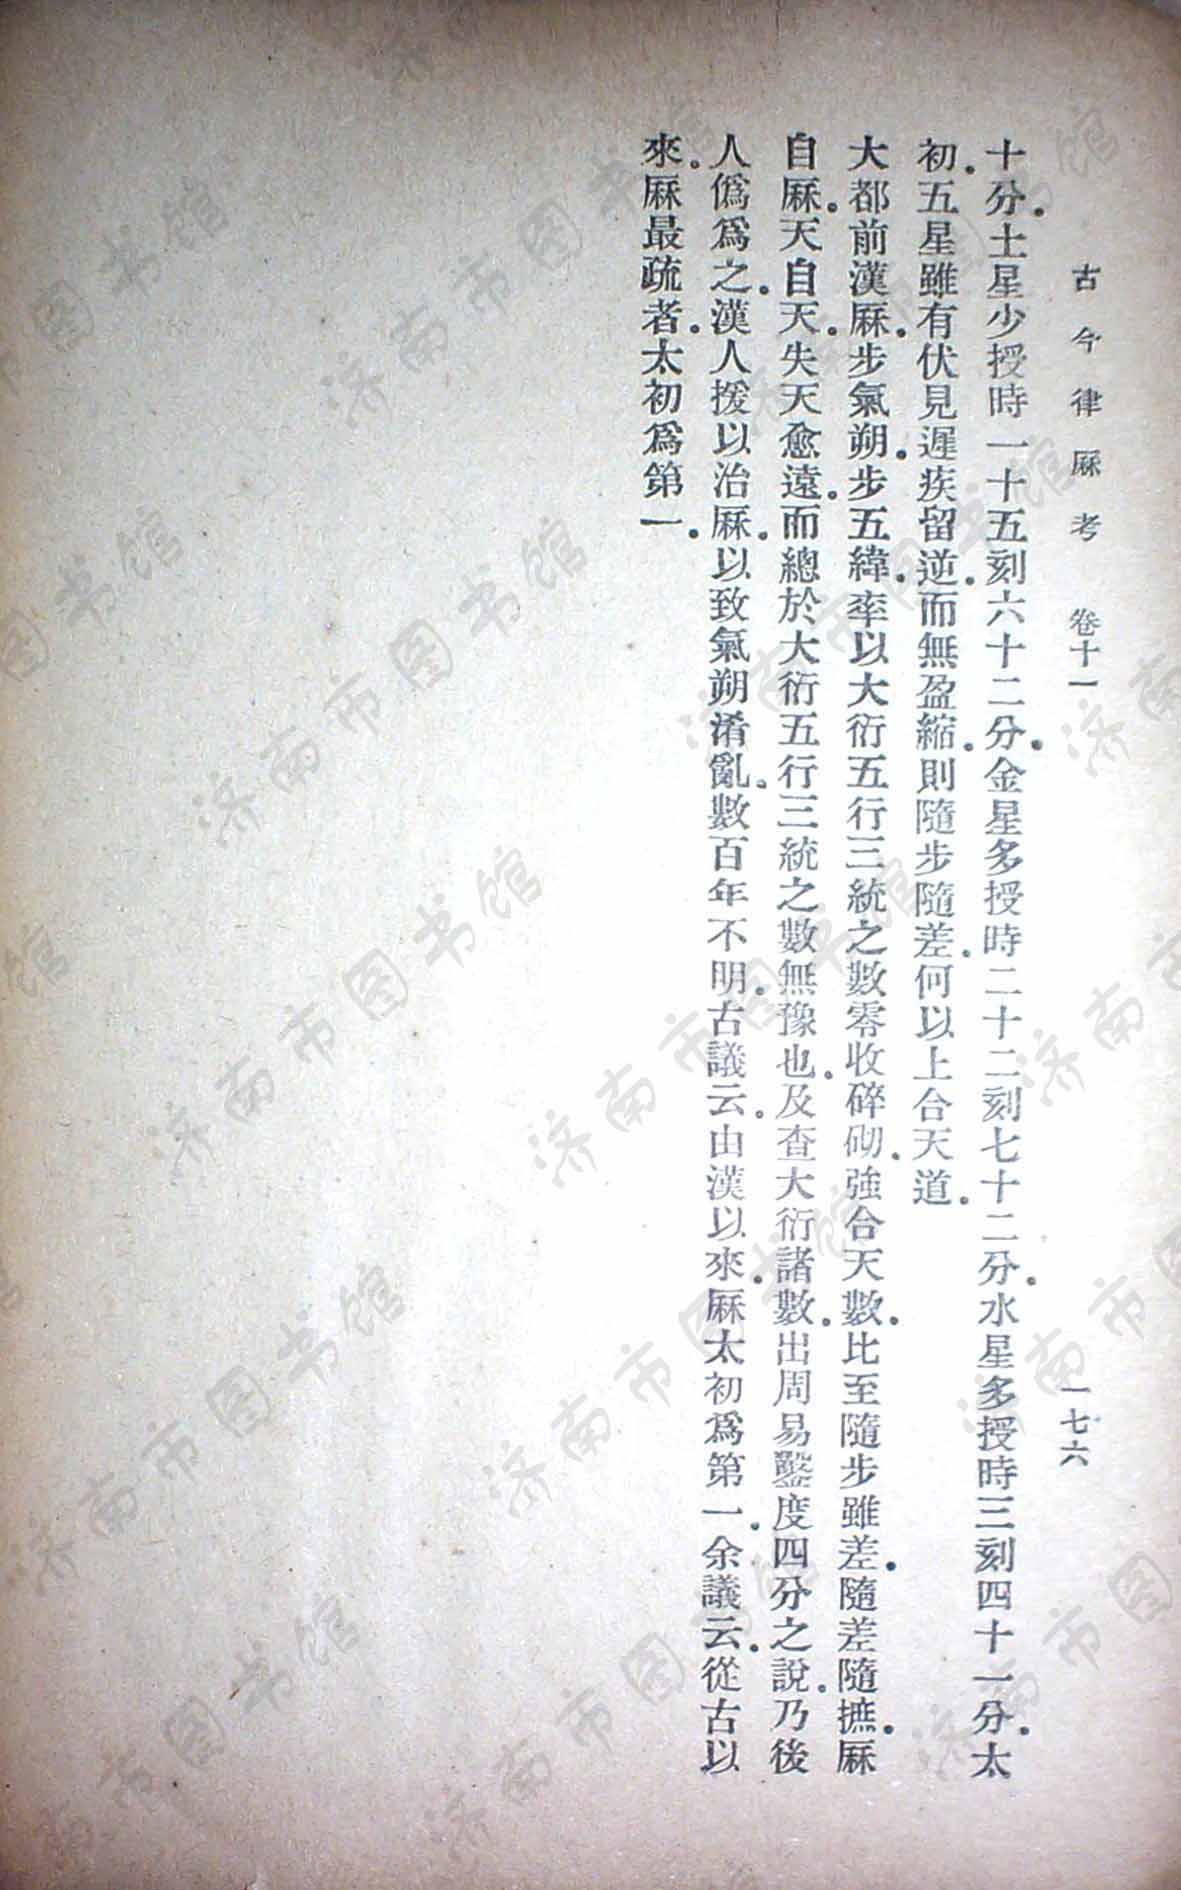 古今律厤考 卷十一 一七六
十分。土星少授時一十五刻六十二分。金星多授時二十二刻七十二分。水星多授時三刻四十一分。太
初。五星雖有伏見遲疾留逆。而無盈縮。則隨步隨差。何以上合天道。
大都前漢厤。步氣朔。步五緯。率以大衍五行三統之數零收碎砌。強合天數。比至隨步雖差。隨差隨摭。厤
自厤。天自天。失天愈遠。而總於大衍五行三統之數無豫也。及查大衍諸數。出周易鑿度四分之說。乃後
人僞爲之。漢人援以治厤。以致氣朔淆亂。數百年不明。古議云。由漢以來。厤太初爲第一。余議云。從古以
來。厤最疏者。太初爲第一。
济南市图书馆